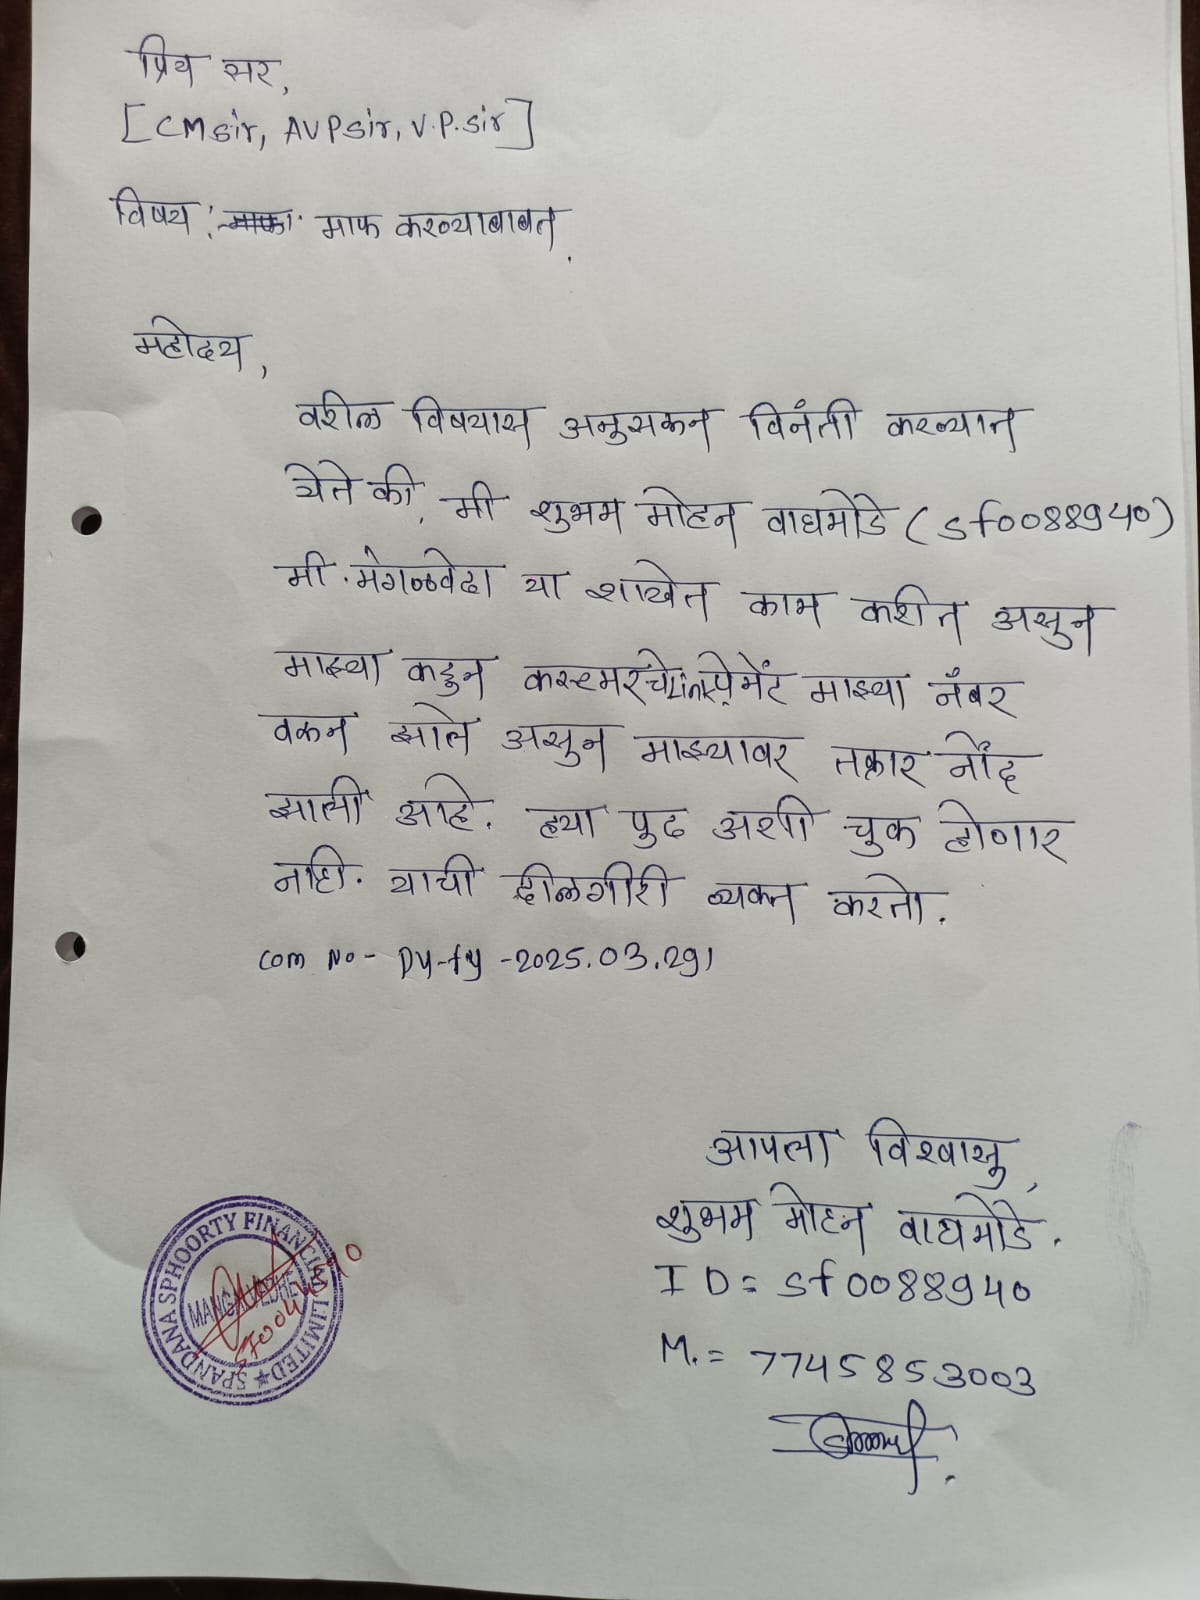 प्रिय सर,
[CM sir, AVP sir, V.P. sir]
विषय: माफ करण्याबाबत.
महोदय,
वरील विषयास अनुसरून विनंती करण्यात
येते की, मी शुभम मोहन वाघमोडे (sf0088940)
मी. मंगळवेढा या शाखेत काम करीत असुन
माझ्या कडुन कस्टमरचे Link पेमेंट माझ्या नंबर
वरून झाले असुन माझ्यावर तक्रार नोंद
झाली आहे. ह्या पुढ अशी चुक होणार
नाही. याची दीलगीरी व्यक्त करतो.
com No - Dy-fy -2025.03.291
आपला विश्वासु,
शुभम मोहन वाघमोडे.
ID = sf0088940
M. = 7745853003
SPANDANA SPHOORTY FINANCIAL LIMITED